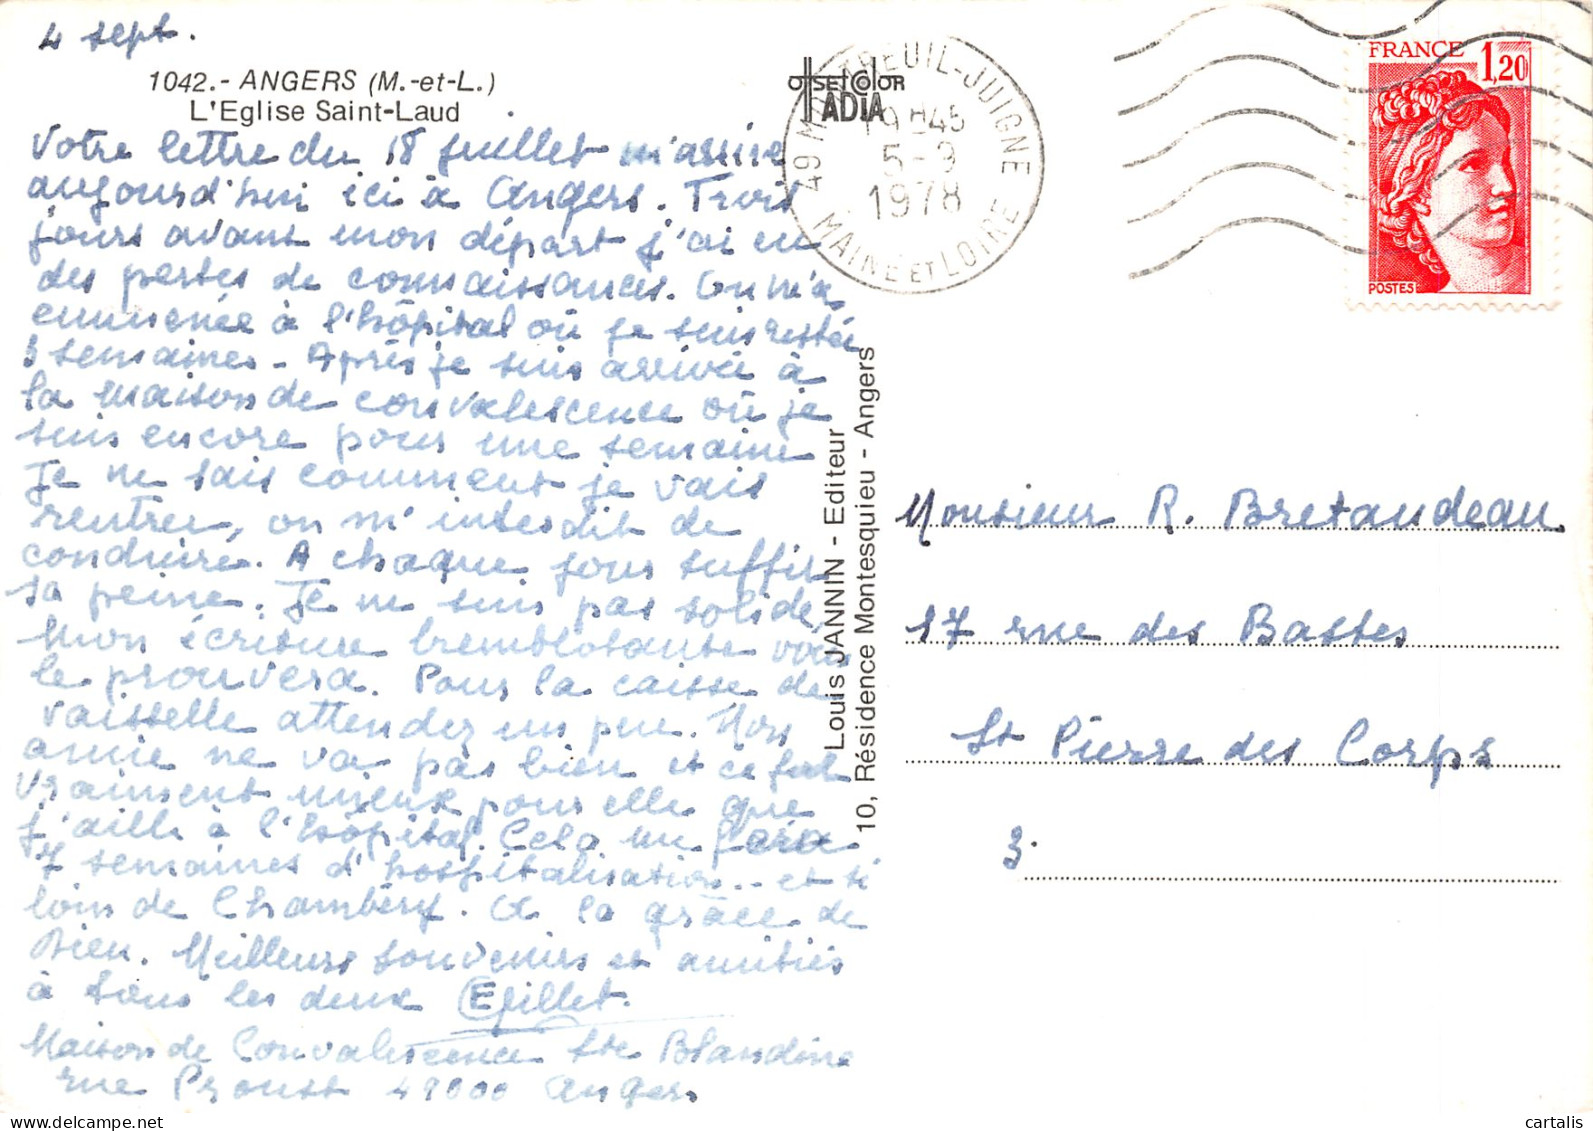 4 sept.
1042.- ANGERS (M.-et-L.)
L'Eglise Saint-Laud
Votre lettre du 18 juillet m'arrive
aujourd'hui ici à Angers. Trois
jours avant mon départ j'ai eu
des pertes de connaissances. On m'a
emmenée à l'hôpital où je suis restée
3 semaines - Après je suis arrivée à
la maison de convalescence où je
suis encore pour une semaine
Je ne sais comment je vais
rentrer, on m'interdit de
conduire. A chaque jour suffit
sa peine. Je ne suis pas solide,
mon écriture tremblotante vous
le prouvera. Pour la caisse de
vaisselle attendez un peu. Mon
amie ne va pas bien et ce fut
vraiment mieux pour elle que
j'aille à l'hôpital. Cela me fera
7 semaines d'hospitalisation... et si
loin de Chambéry. A la grâce de
Dieu. Meilleurs souvenirs et amitiés
à tous les deux
Maison de Convalescence Ste Blandine
rue Proust 49000 Angers
OFFSET COLOR
ADIA
49 MONTREUIL-JUIGNE
19H45
5-9
1978
MAINE ET LOIRE
FRANCE 1,20
POSTES
Louis JANNIN - Editeur
10, Résidence Montesquieu - Angers
Monsieur R. Bretaudeau
17 rue des Bastes
St Pierre des Corps
3.
cartalis